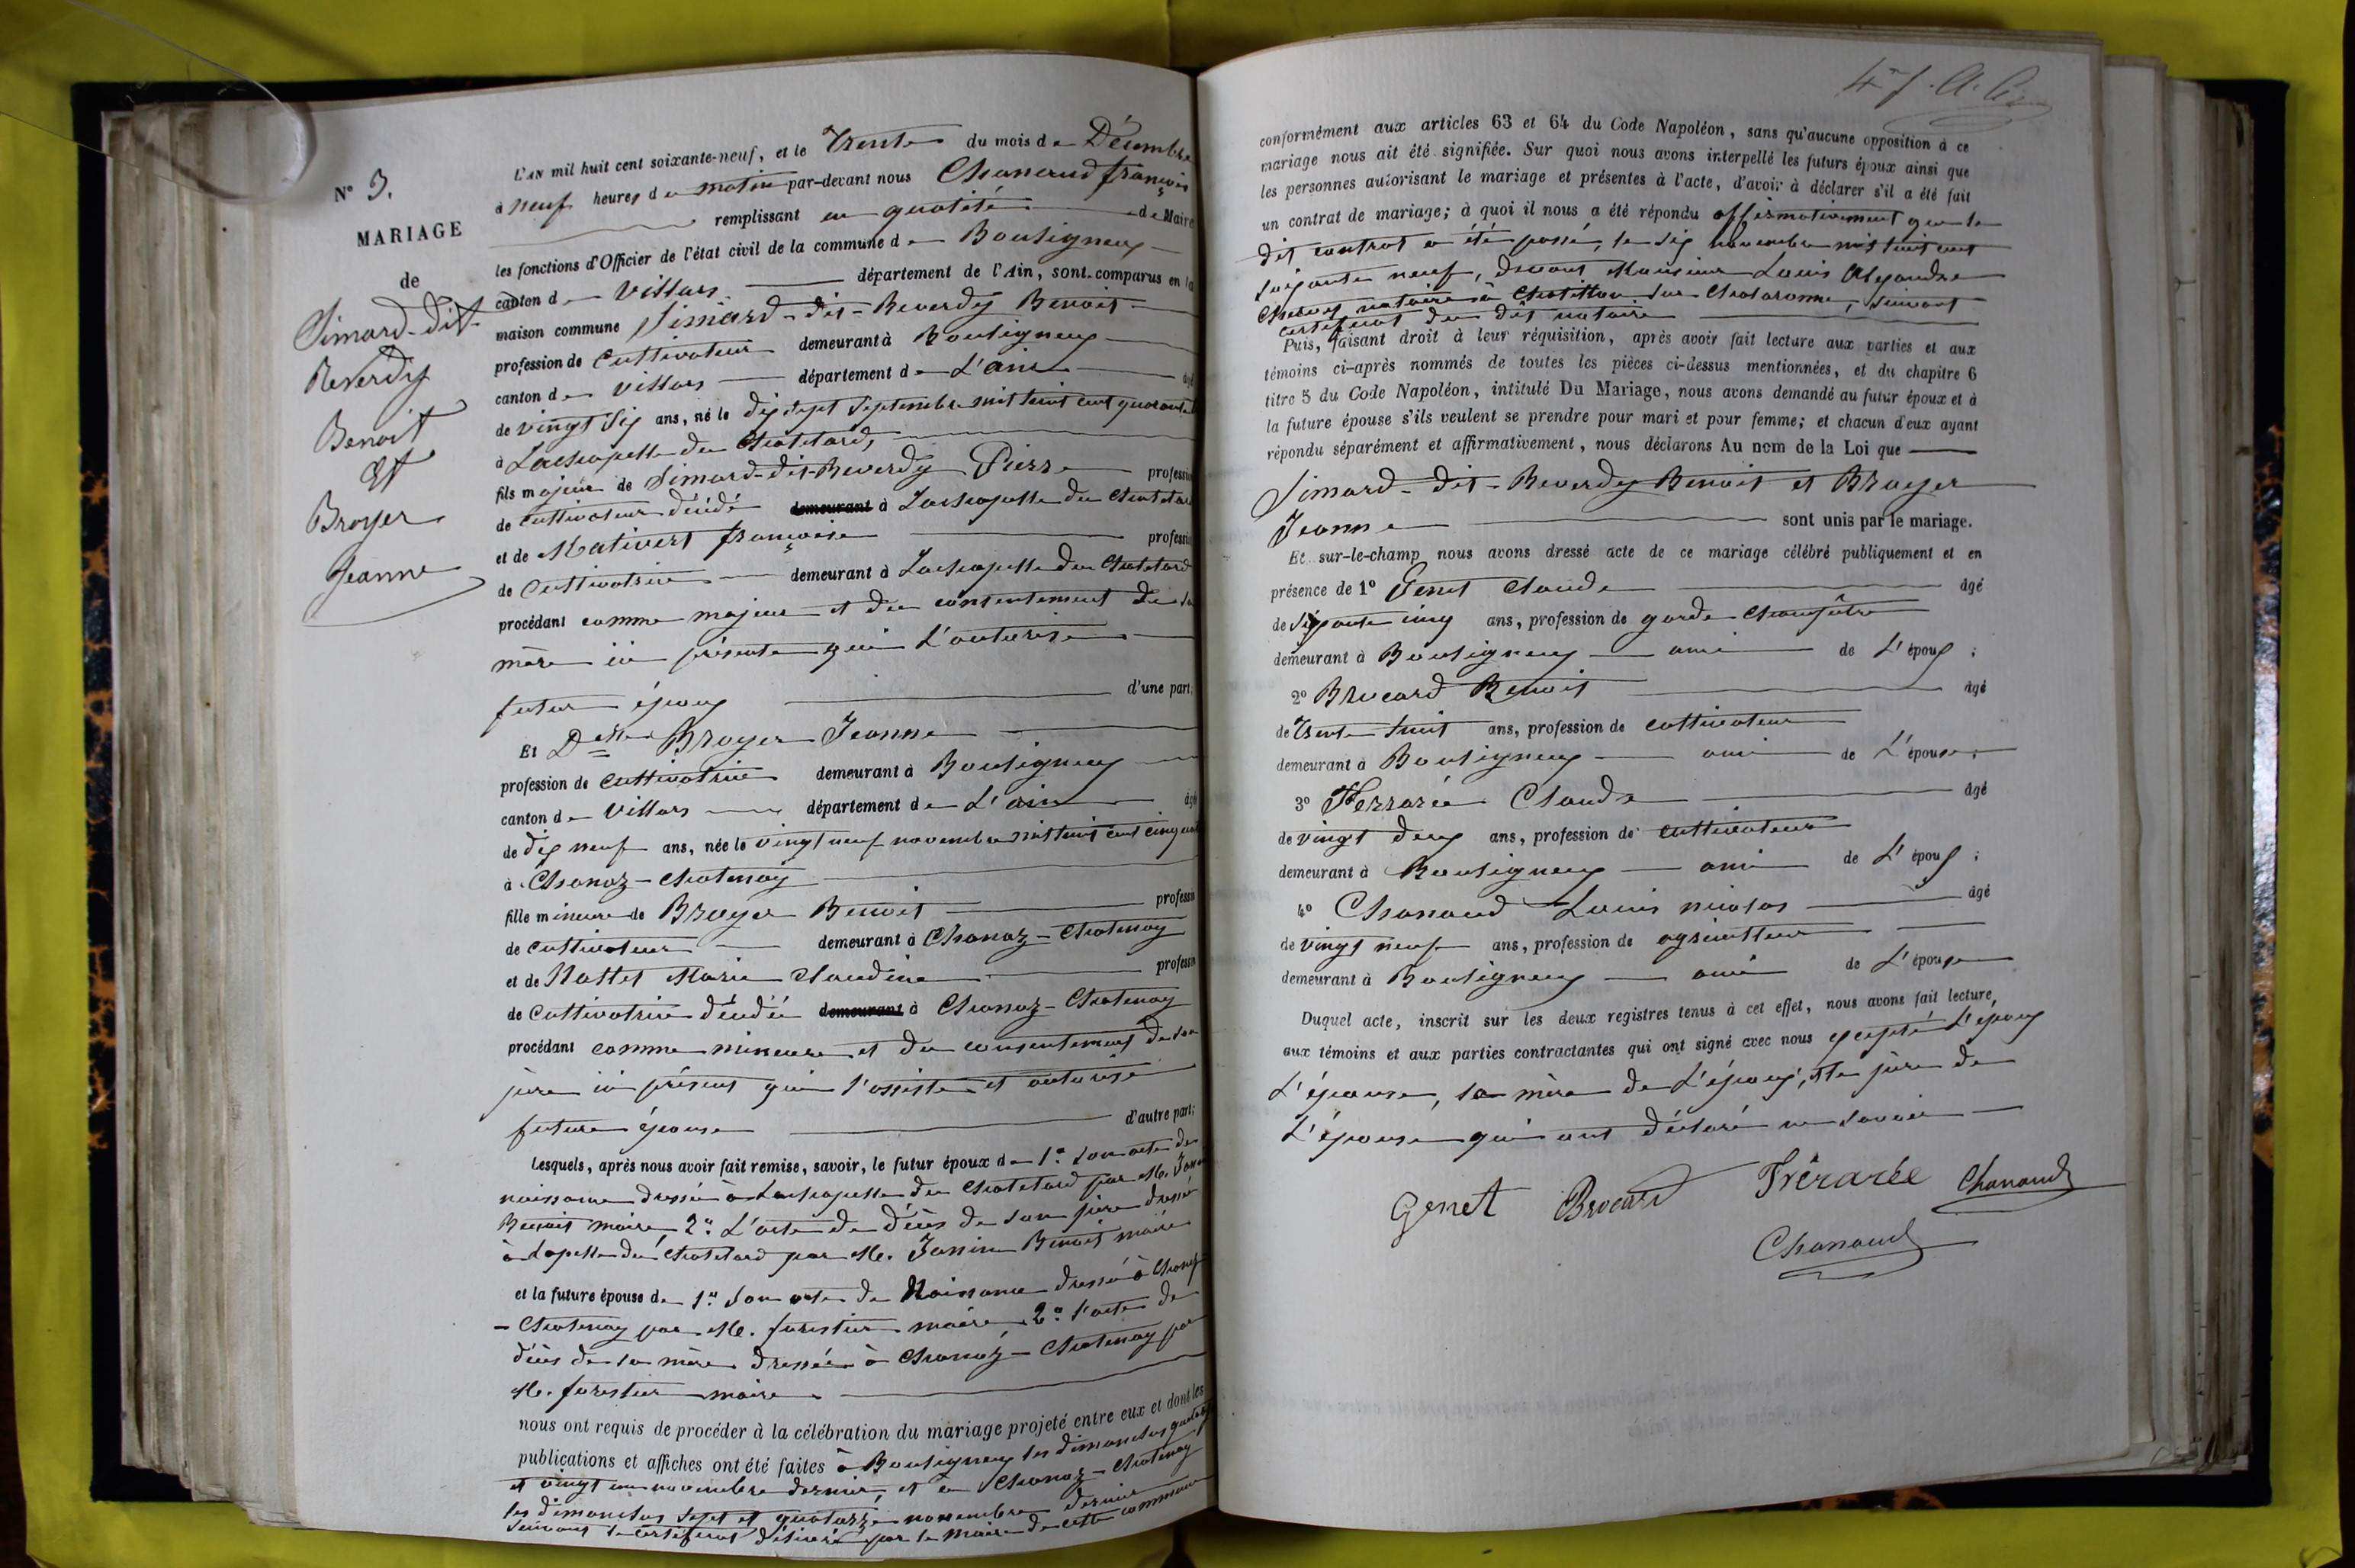 N° 3.
MARIAGE
de
Simard-dit-
Reverdy
Benoit
Et
Broyer
Jeanne
L'AN mil huit cent soixante-neuf, et le Trente du mois de Décembre
à neuf heures du matin par-devant nous Chanaud françois
remplissant en qualité de Maire
les fonctions d'Officier de l'état civil de la commune de Bouligneux
canton de Villars département de l'Ain, sont comparus en la
maison commune Simard-dit-Reverdy Benoit
profession de Cultivateur demeurant à Bouligneux
canton de Villars département de L'ain âgé
de vingt six ans, né le dix sept Septembre mil huit cent quarante
à Lachapelle du Chatelard,
fils majeur de Simard-dit-Reverdy Pierre profession
de cultivateur décédé demeurant à Lachapelle du Chatelard
et de Mativert françoise profession
de Cultivatrice demeurant à Lachapelle du Chatelard
procédant comme majeur et du consentement de sa
mère ici présente qui L'autorise
futur époux d'une part;
Et Dlle Broyer Jeanne
profession de Cultivatrice demeurant à Bouligneux
canton de Villars département de L'ain âgé
de dix neuf ans, née le vingt neuf novembre mil huit cent cinquante
à Chanoz-Chatenay
fille mineure de Broyer Benoit profession
de cultivateur demeurant à Chanoz-Chatenay
et de Nallet Marie Claudine profession
de Cultivatrice décédée demeurant à Chanoz-Chatenay
procédant comme mineure et du consentement de son
père ici présent qui l'assiste et autorise
future épouse d'autre part;
Lesquels, après nous avoir fait remise, savoir, le futur époux de 1° son acte de
naissance dressé à Lachapelle du Chatelard par M. Janin
Benoit maire, 2° L'acte de décès de son père dressé
à Lapelle du Chatelard par M. Janin Benoit maire
et la future épouse de 1° son acte de Naissance dressé à Chanoz
-Chatenay par M. forestier maire, 2° l'acte de
décès de sa mère dressée à Chanoz-Chatenay par
M. forestier maire
nous ont requis de procéder à la célébration du mariage projeté entre eux et dont les
publications et affiches ont été faites à Bouligneux les dimanches quatorze
et vingt un novembre dernier, et à Chanoz-Chatenay
les dimanches sept et quatorze novembre dernier
suivant le certificat délivré par le maire de cette commune
conformément aux articles 63 et 64 du Code Napoléon, sans qu'aucune opposition à ce
mariage nous ait été signifiée. Sur quoi nous avons interpellé les futurs époux ainsi que
les personnes autorisant le mariage et présentes à l'acte, d'avoir à déclarer s'il a été fait
un contrat de mariage; à quoi il nous a été répondu affirmativement que le
dit contrat a été passé, le six novembre mil huit cent
soixante neuf, devant Monsieur Louis Alexandre
notaire à Chatillon sur Chalaronne, suivant
certificat du dit notaire
Puis, faisant droit à leur réquisition, après avoir fait lecture aux parties et aux
témoins ci-après nommés de toutes les pièces ci-dessus mentionnées, et du chapitre 6
titre 5 du Code Napoléon, intitulé Du Mariage, nous avons demandé au futur époux et à
la future épouse s'ils veulent se prendre pour mari et pour femme; et chacun d'eux ayant
répondu séparément et affirmativement, nous déclarons Au nom de la Loi que
Simard-dit-Reverdy Benoit et Broyer
Jeanne sont unis par le mariage.
Et sur-le-champ nous avons dressé acte de ce mariage célébré publiquement et en
présence de 1° Genet Claude âgé
de soixante cinq ans, profession de garde champêtre
demeurant à Bouligneux ami de L'époux;
2° Brocard Benoit âgé
de Trente huit ans, profession de cultivateur
demeurant à Bouligneux ami de L'épouse;
3° Ferrarée Claude âgé
de vingt deux ans, profession de cultivateur
demeurant à Bouligneux ami de L'époux;
4° Chanaud Louis nicolas âgé
de vingt neuf ans, profession de agriculteur
demeurant à Bouligneux ami de L'épouse
Duquel acte, inscrit sur les deux registres tenus à cet effet, nous avons fait lecture,
aux témoins et aux parties contractantes qui ont signé avec nous excepté L'époux
L'épouse, la mère de L'époux, et le père de
L'épouse qui ont déclaré ne savoir
Genet Brocard Frérarée Chanaud
Chanaud